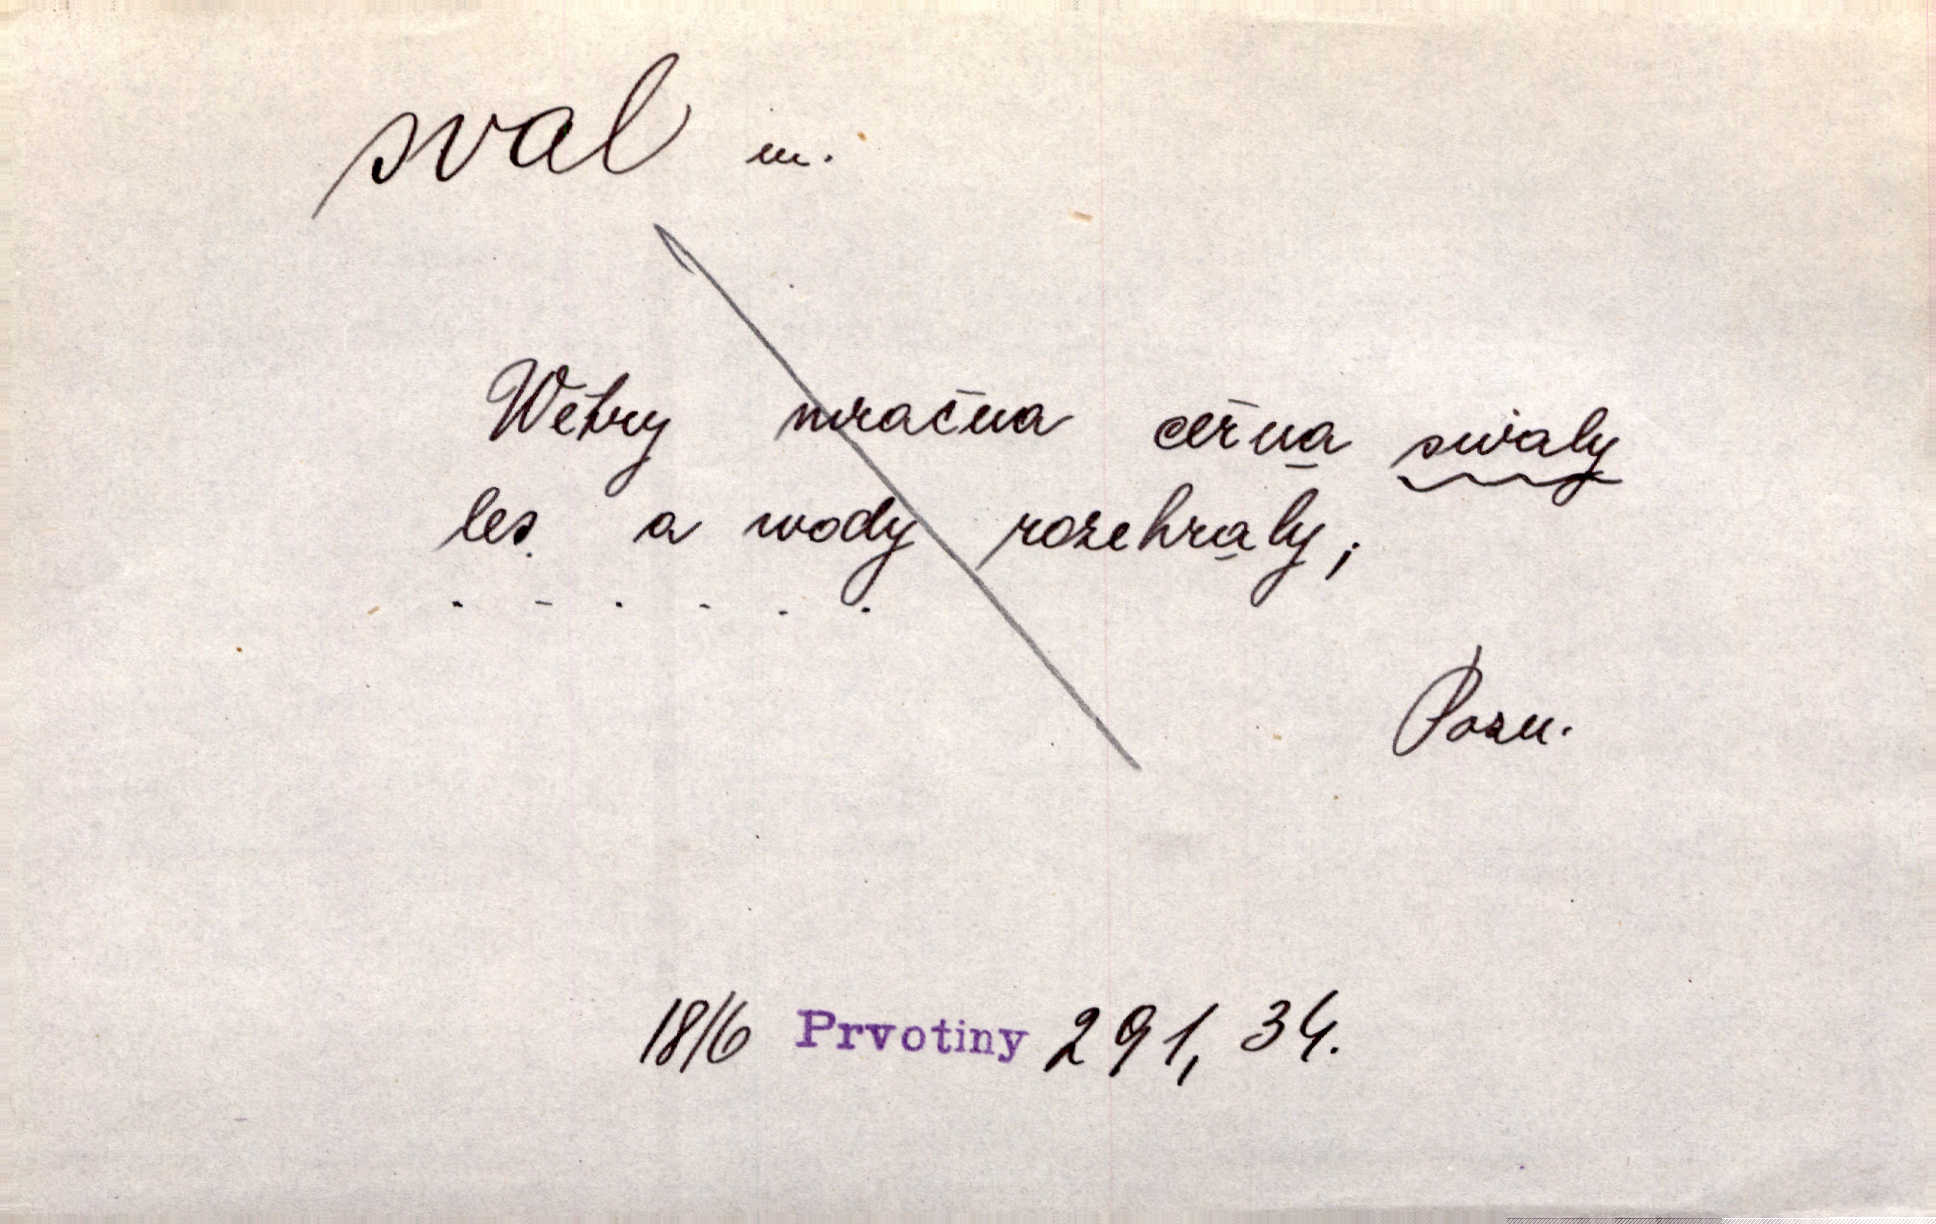 sval m.
Wětry mračna černa swaly
les a wody rozehraly;
. - . - . .
Pozn.
1816 Prvotiny 291, 34.